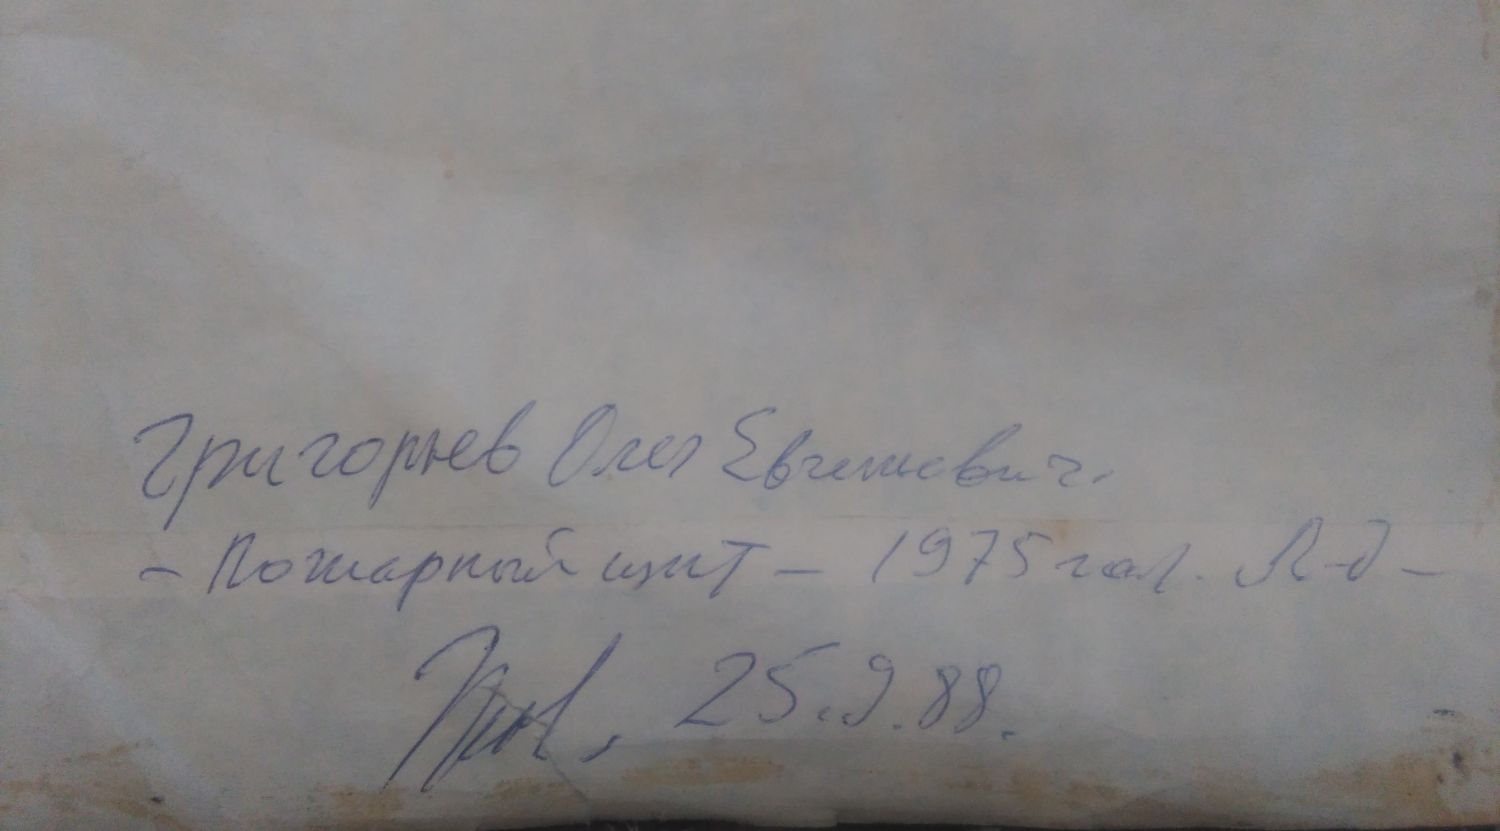 Григорьев Олег Евгеньевич.
– Пожарный щит – 1975 год. Л-д –
25.9.88.